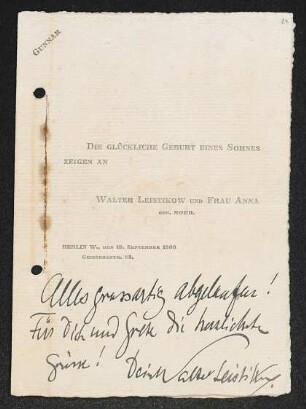 GUNNAR
DIE GLÜCKLICHE GEBURT EINES SOHNES
ZEIGEN AN
WALTER LEISTIKOW UND FRAU ANNA
GEB. MOHR.
BERLIN W., DEN SEPTEMBER
Alles grossartig abgelaufen!
Für Dich und Grete die herzlichsten
Grüsse! Dein Walter Leistikow.